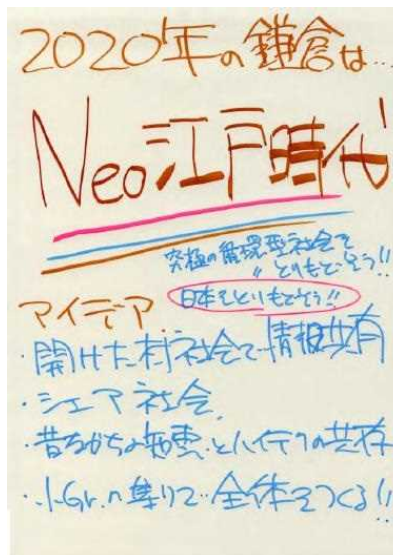 2020年の鎌倉は…
Neo江戸時代
究極の循環型社会を
とりもどそう!!
日本をとりもどそう!!
アイデア
・開けた村社会で情報共有
・シェア社会
・昔ながらの知恵とハイテクの共存
・小Gr.の集りで全体をつくる!!